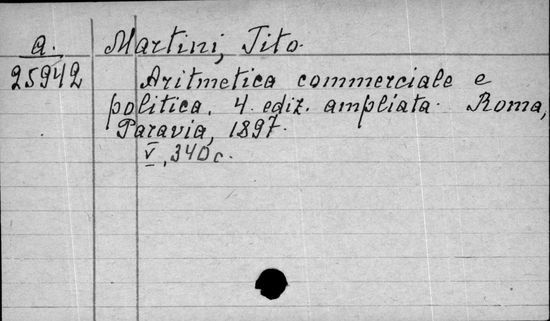 a. Martini, Tito.
25942 Aritmetica commerciale e
politica. 4. ediz. ampliata. Roma,
Paravia, 1897.
V, 340 c.